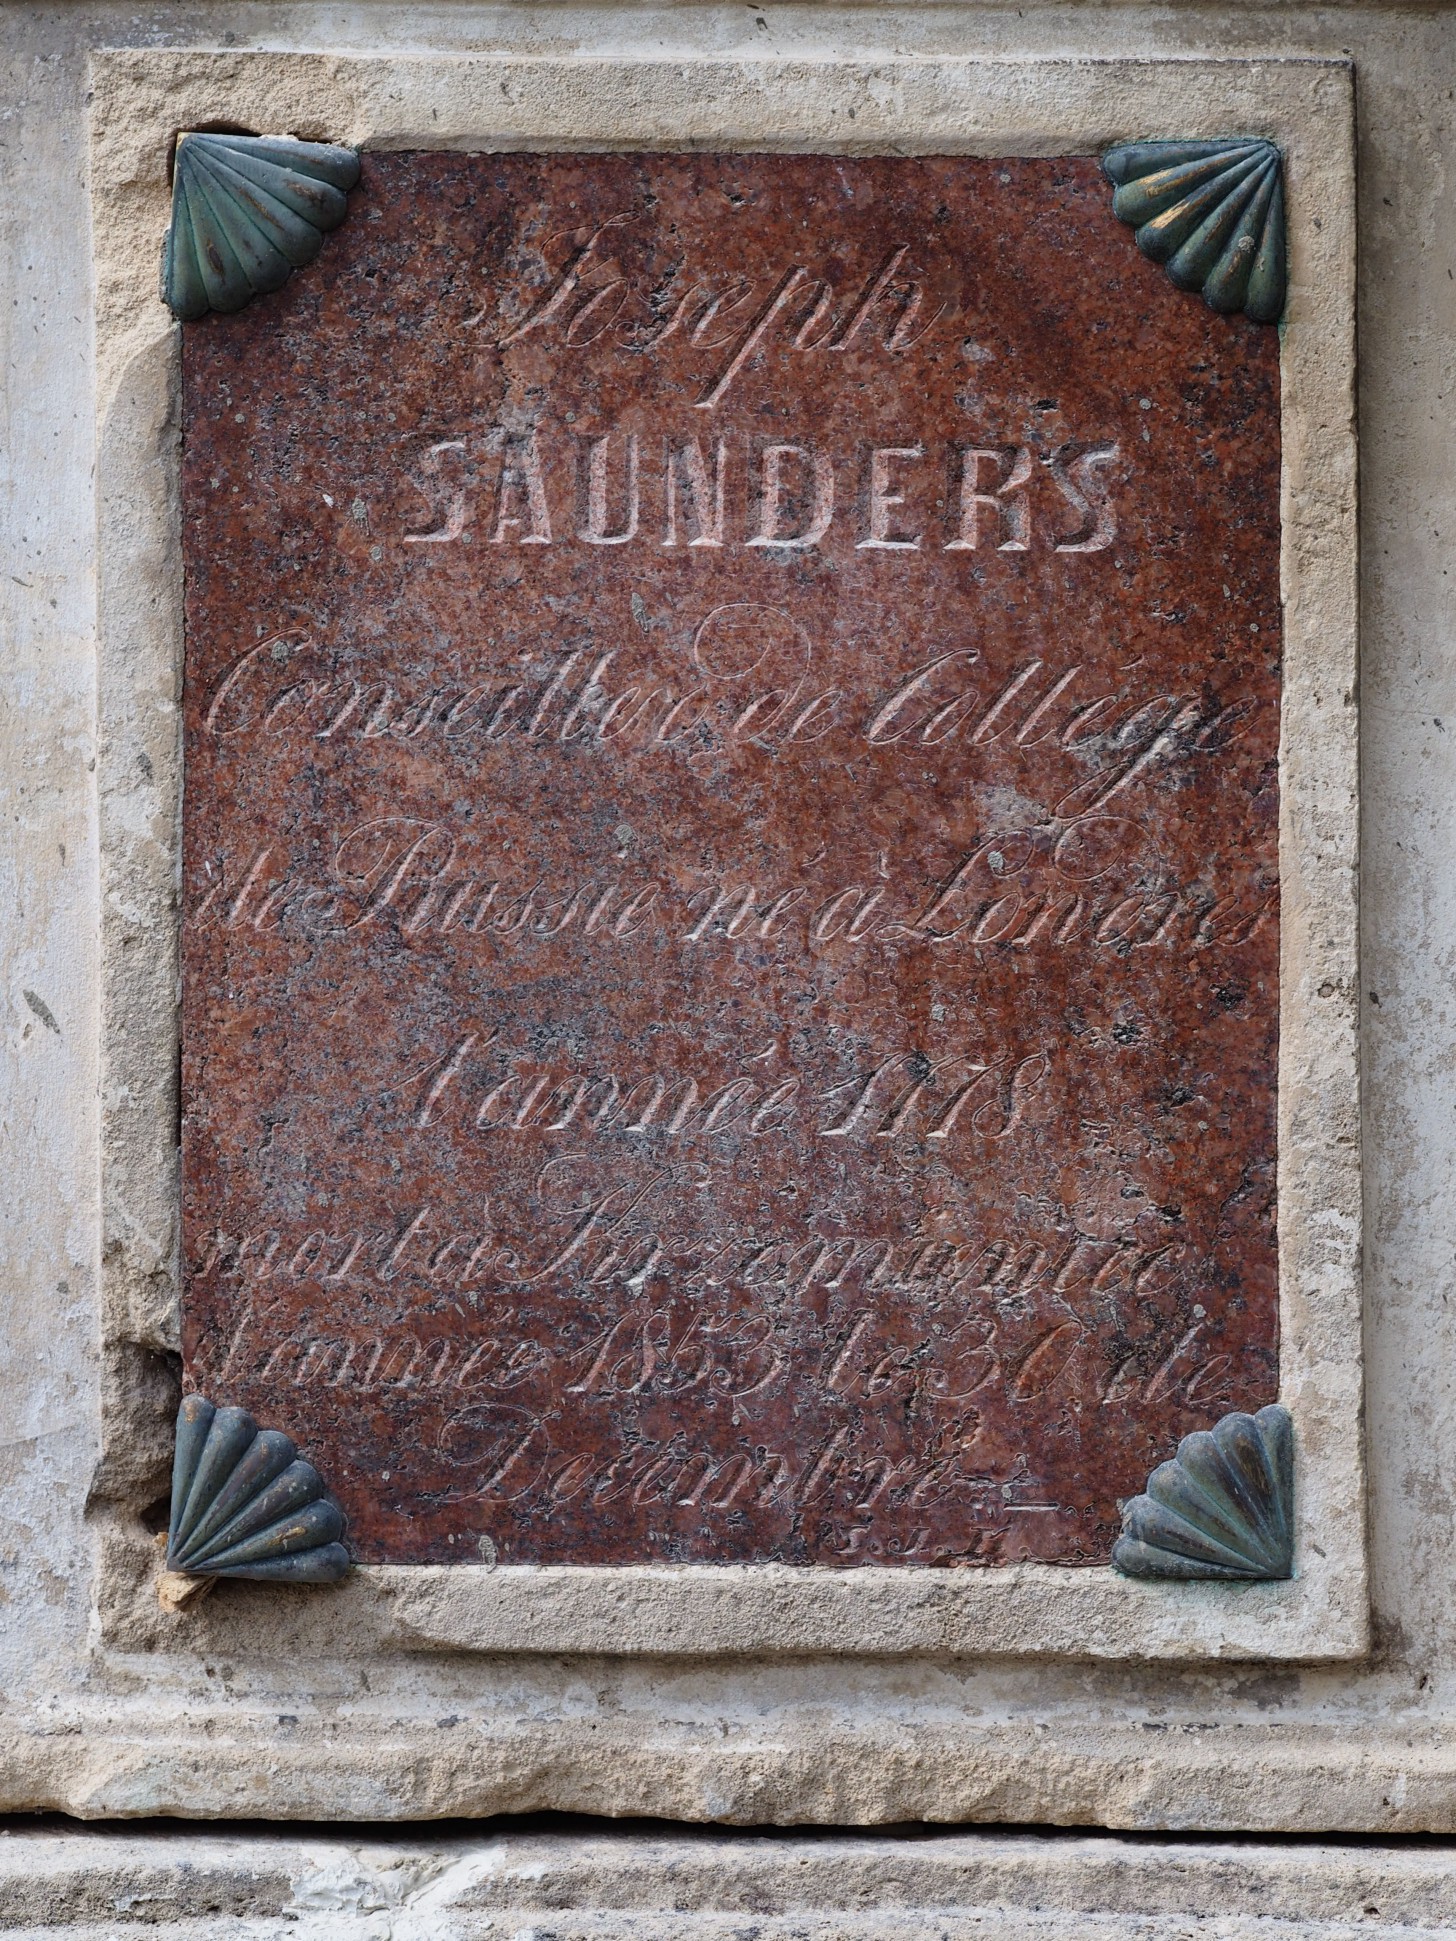 Joseph
SAUNDERS
Conseiller de Collége
de Russie né à Londres
l'année 1778
mort à Krzemieniec
l'année 1853 le 30 de
Decembre